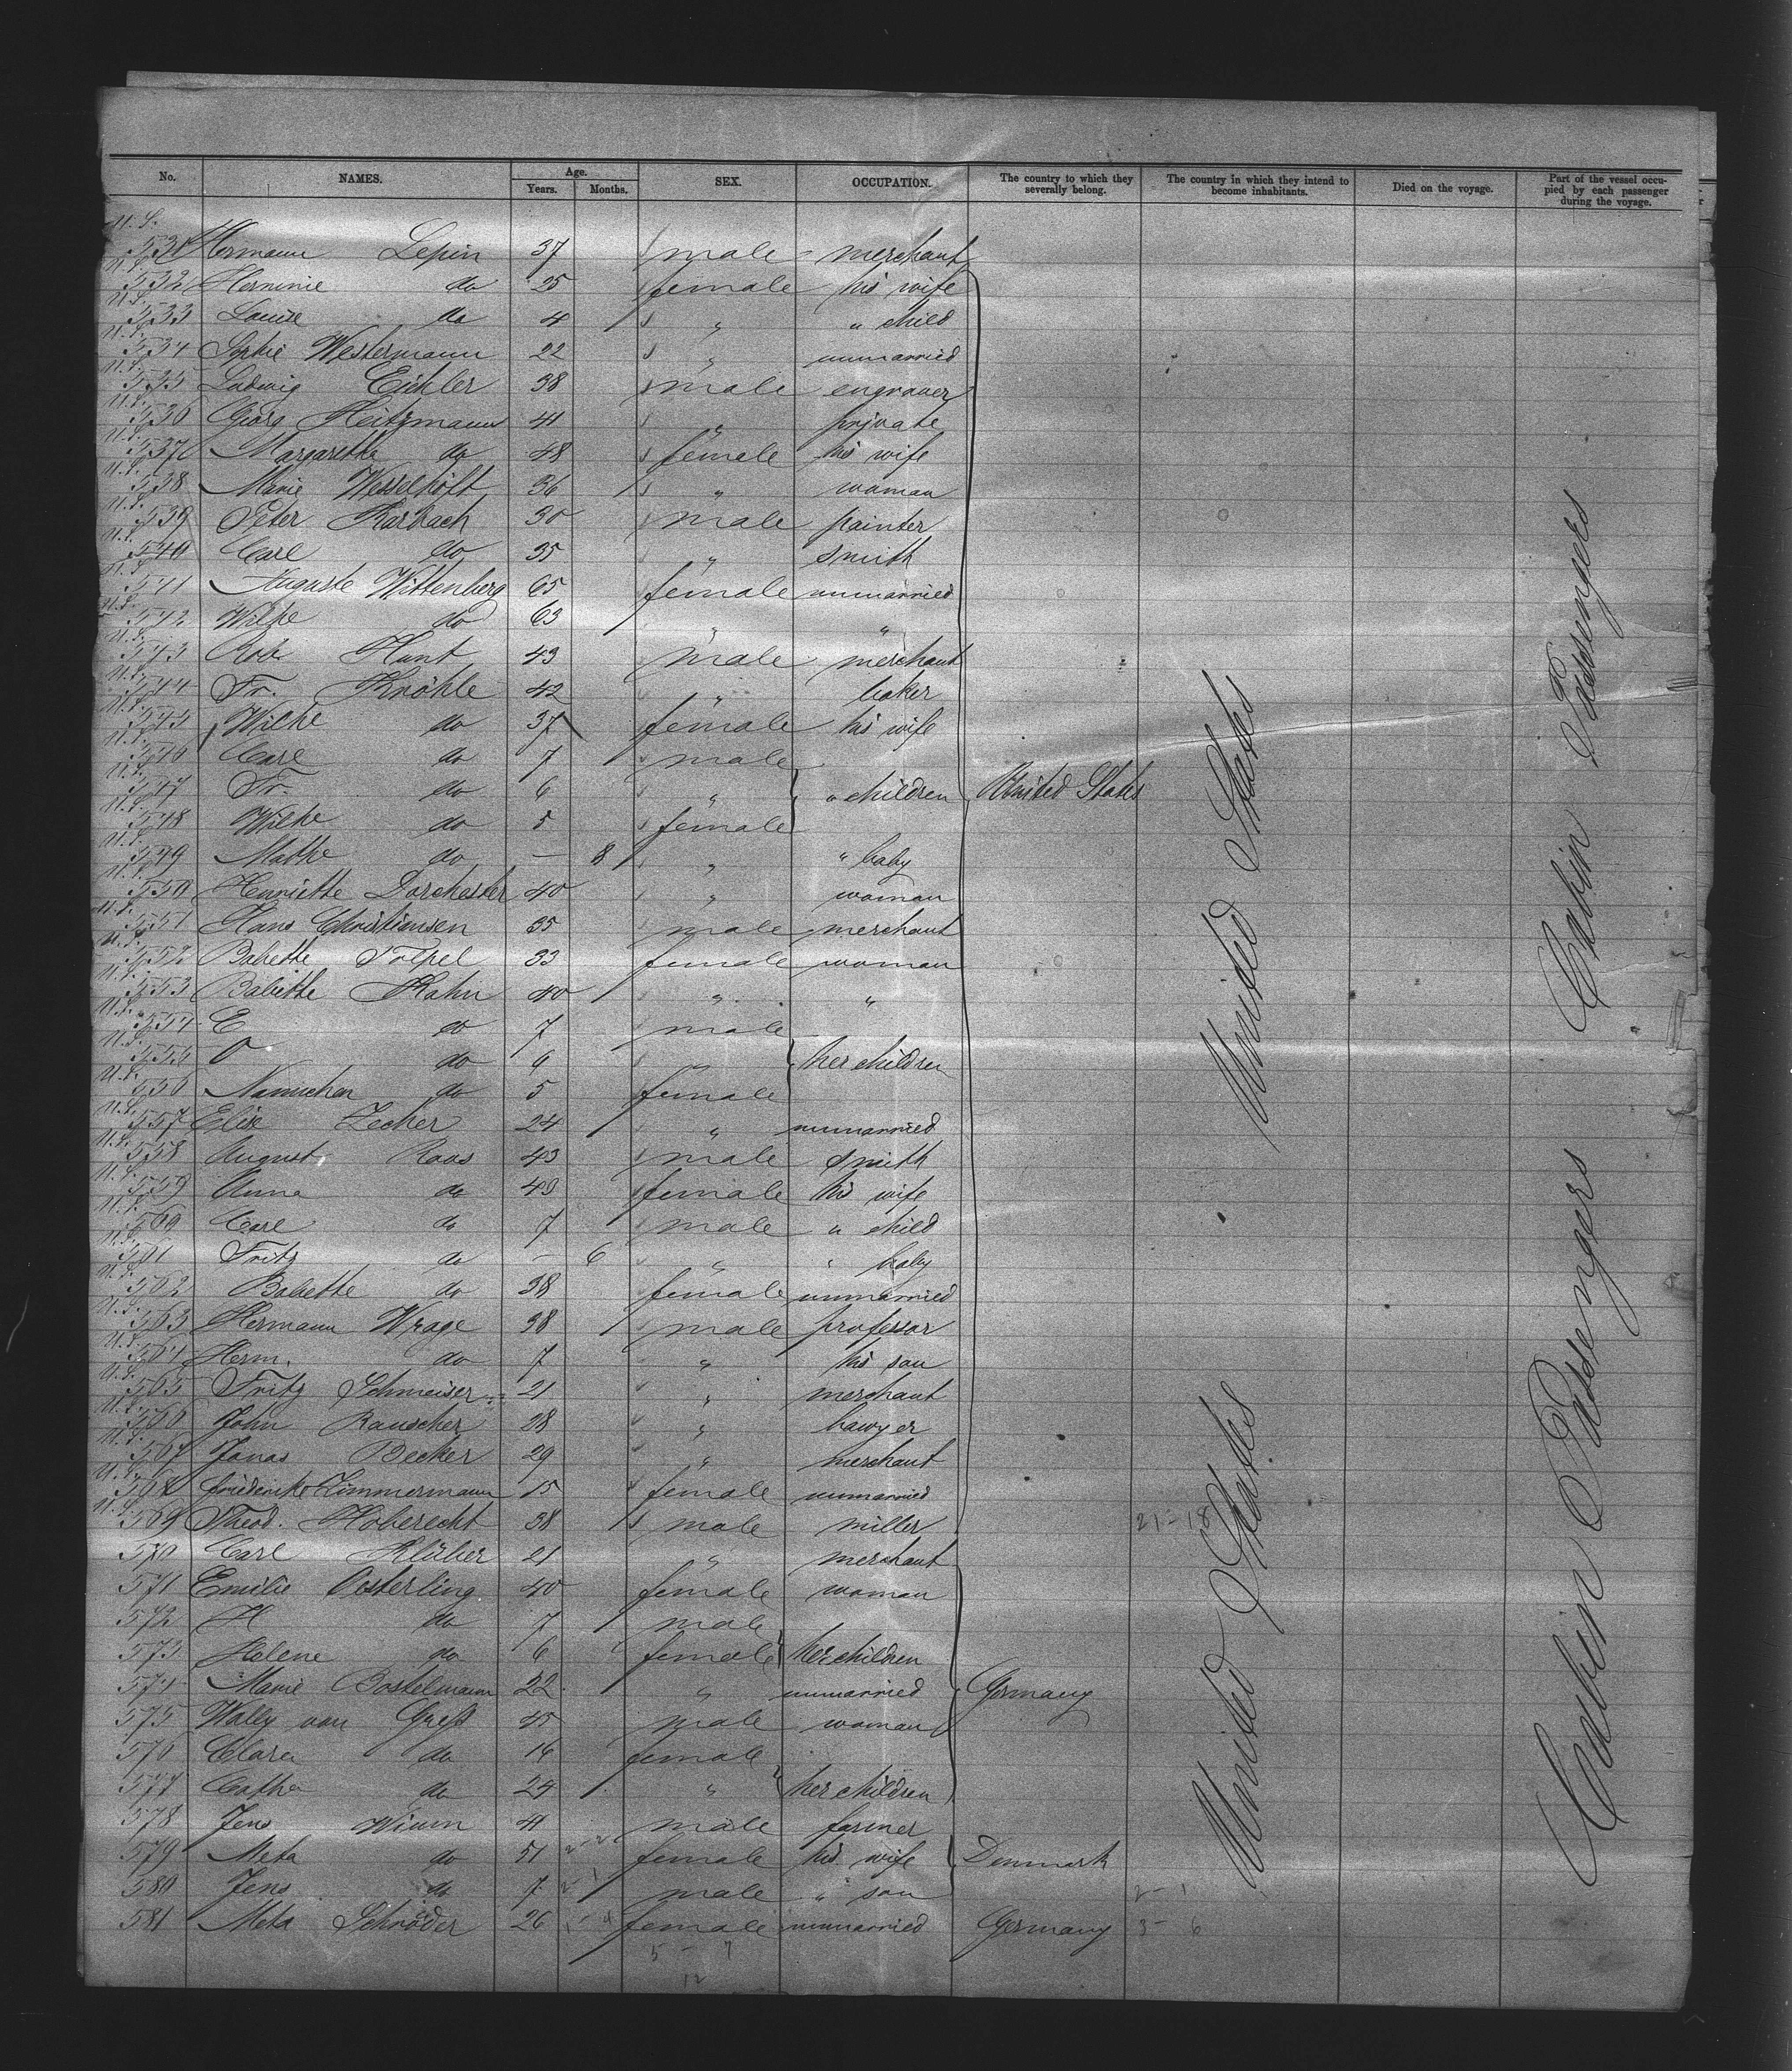 No. NAMES. Age. Years. Months. SEX. OCCUPATION. The country to which they severally belong. The country in which they intend to become inhabitants. Died on the voyage. Part of the vessel occupied by each passenger during the voyage.
U.S. 531 Hermann Lepin 37 male merchant
U.S. 532 Hermine do 25 female his wife
U.S. 533 Louise do 4 " " child
U.S. 534 Sophie Westermann 22 " unmarried
U.S. 535 Ludwig Eichler 38 male engraver
U.S. 536 Georg Heitzmann 41 " private
U.S. 537 Margarethe do 48 female his wife
U.S. 538 Marie Wesselhöft 36 " woman
U.S. 539 Peter Karbach 30 male painter
U.S. 540 Carl do 35 " smith
U.S. 541 Auguste Wittenberg 65 female unmarried
U.S. 542 Wilhe do 63 " "
U.S. 543 Rob. Hunt 43 male merchant
U.S. 544 Fr. Knöhle 42 " baker
U.S. 545 Wilhe do 37 female his wife
U.S. 546 Carl do 7 male
U.S. 547 Fr. do 6 " " children United States
U.S. 548 Wilhe do 5 female
U.S. 549 Mathe do — 8 " " baby
U.S. 550 Henriette Dorchester 40 " woman
U.S. 551 Hans Christiansen 35 male merchant
U.S. 552 Babette 33 female woman
U.S. 553 Babette Kahn 40 " "
U.S. 554 E do 7 male
U.S. 555 O do 6 " her children
U.S. 556 Nannchen do 5 female
U.S. 557 Elise Zecher 24 " unmarried
U.S. 558 August Roos 43 male smith
U.S. 559 Anna do 43 female his wife
U.S. 560 Carl do 7 male " child
U.S. 561 Fritz do — 6 " " baby
U.S. 562 Babette do 38 female unmarried
U.S. 563 Hermann Wrage 38 male professor
U.S. 564 Herm. do 7 " his son
U.S. 565 Fritz Schmeiser 21 " merchant
U.S. 566 John Rauscher 28 " lawyer
U.S. 567 Jonas Becker 29 " merchant
U.S. 568 Friederike Zimmermann 15 female unmarried
U.S. 569 Theod. Hoberecht 38 male miller 21-18
570 Carl Klüber 21 " merchant
571 Emilie Oesterling 40 female woman
572 H do 7 male
573 Helene do 6 female her children
574 Marie Bostelmann 22 " unmarried Germany
575 Wally van 45 male woman
576 Clara do 16 female
577 Cathe do 24 " her children
578 Jens Wium 41 male farmer
579 Meta do 51 2-2 female his wife Denmark
580 Jens do 7 2-1 male " son 2-1
581 Meta Schröder 26 female unmarried Germany 3-6
5-7
12
United States
United States
Cabin Passengers
Cabin Passengers